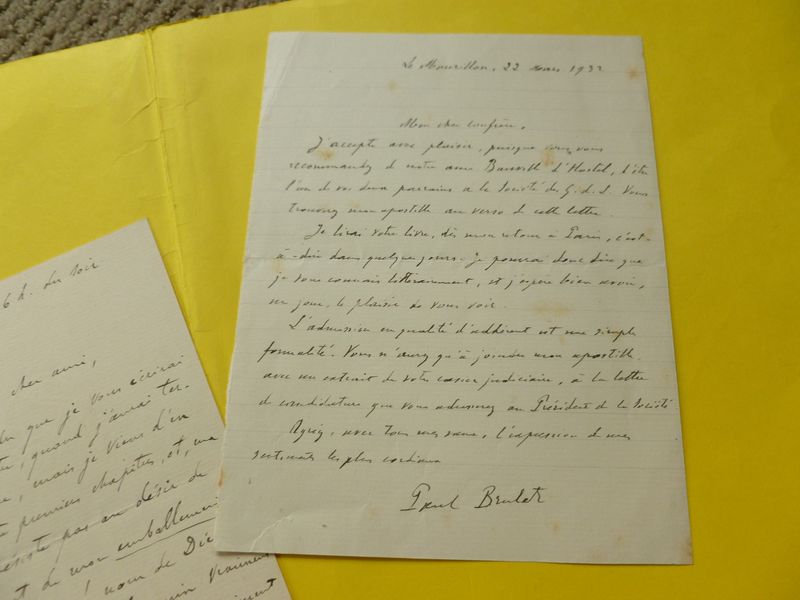 Le Mourillon, 22 mars 1932
Mon cher confrère,
J'accepte avec plaisir, puisque vous vous
recommandez de notre ami Banville d'Hostel, d'être
l'un de vos deux parrains à la Société des G. d. L. Vous
trouverez mon apostille au verso de cette lettre.
Je lirai votre livre, dès mon retour à Paris, c'est-
-à-dire dans quelques jours. Je pourrai donc dire que
je vous connais littérairement, et j'espère bien avoir,
un jour, le plaisir de vous voir.
L'admission en qualité d'adhérent est une simple
formalité. Vous n'aurez qu'à joindre mon apostille
avec un extrait de votre casier judiciaire, à la lettre
de candidature que vous adresserez au Président de la Société
Agréez, avec tous mes vœux, l'expression de mes
sentiments les plus cordiaux
Paul Brulat
6 h. du soir
cher ami,
que je vous écrirai
quand j'aurai ter-
mais je viens d'en
premiers chapitres, et, ma
résiste pas au désir de
de mon emballement
nom de Die
vraiment